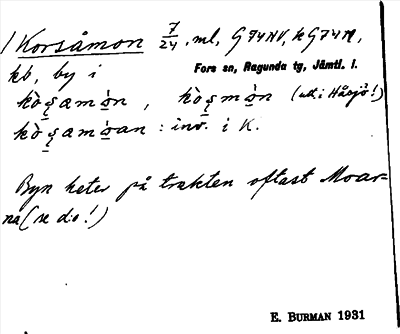 Korsåmon 7/24, ml, G74NV, k G74N,
kb, by i
Fors sn, Ragunda tg, Jämtl. l.
kò̀ʂamòn, kòʂmòn (utt. i Håsjö!)
kòʂamòan : inv. i K.
Byn heter på trakten oftast Moar-
na (se d:o!)
E. BURMAN 1931